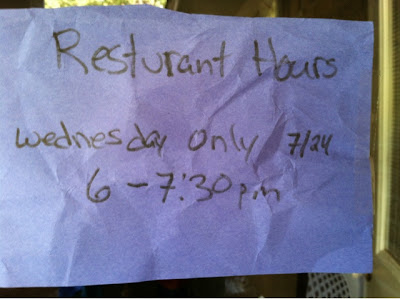 Resturant Hours
Wednesday Only 7/24
6-7:30pm